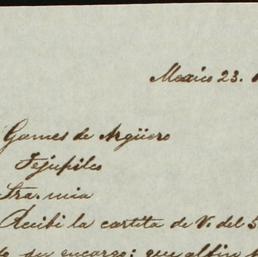 Mexico 23.
Games de Argüero
Tejupilco
Sra. mia
Recibi la cartita de V. del 5
su encargo; que al fin